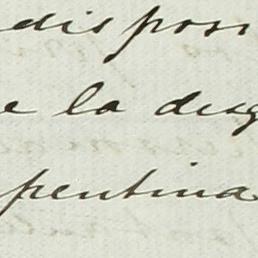 disposi
e la desg
pentina